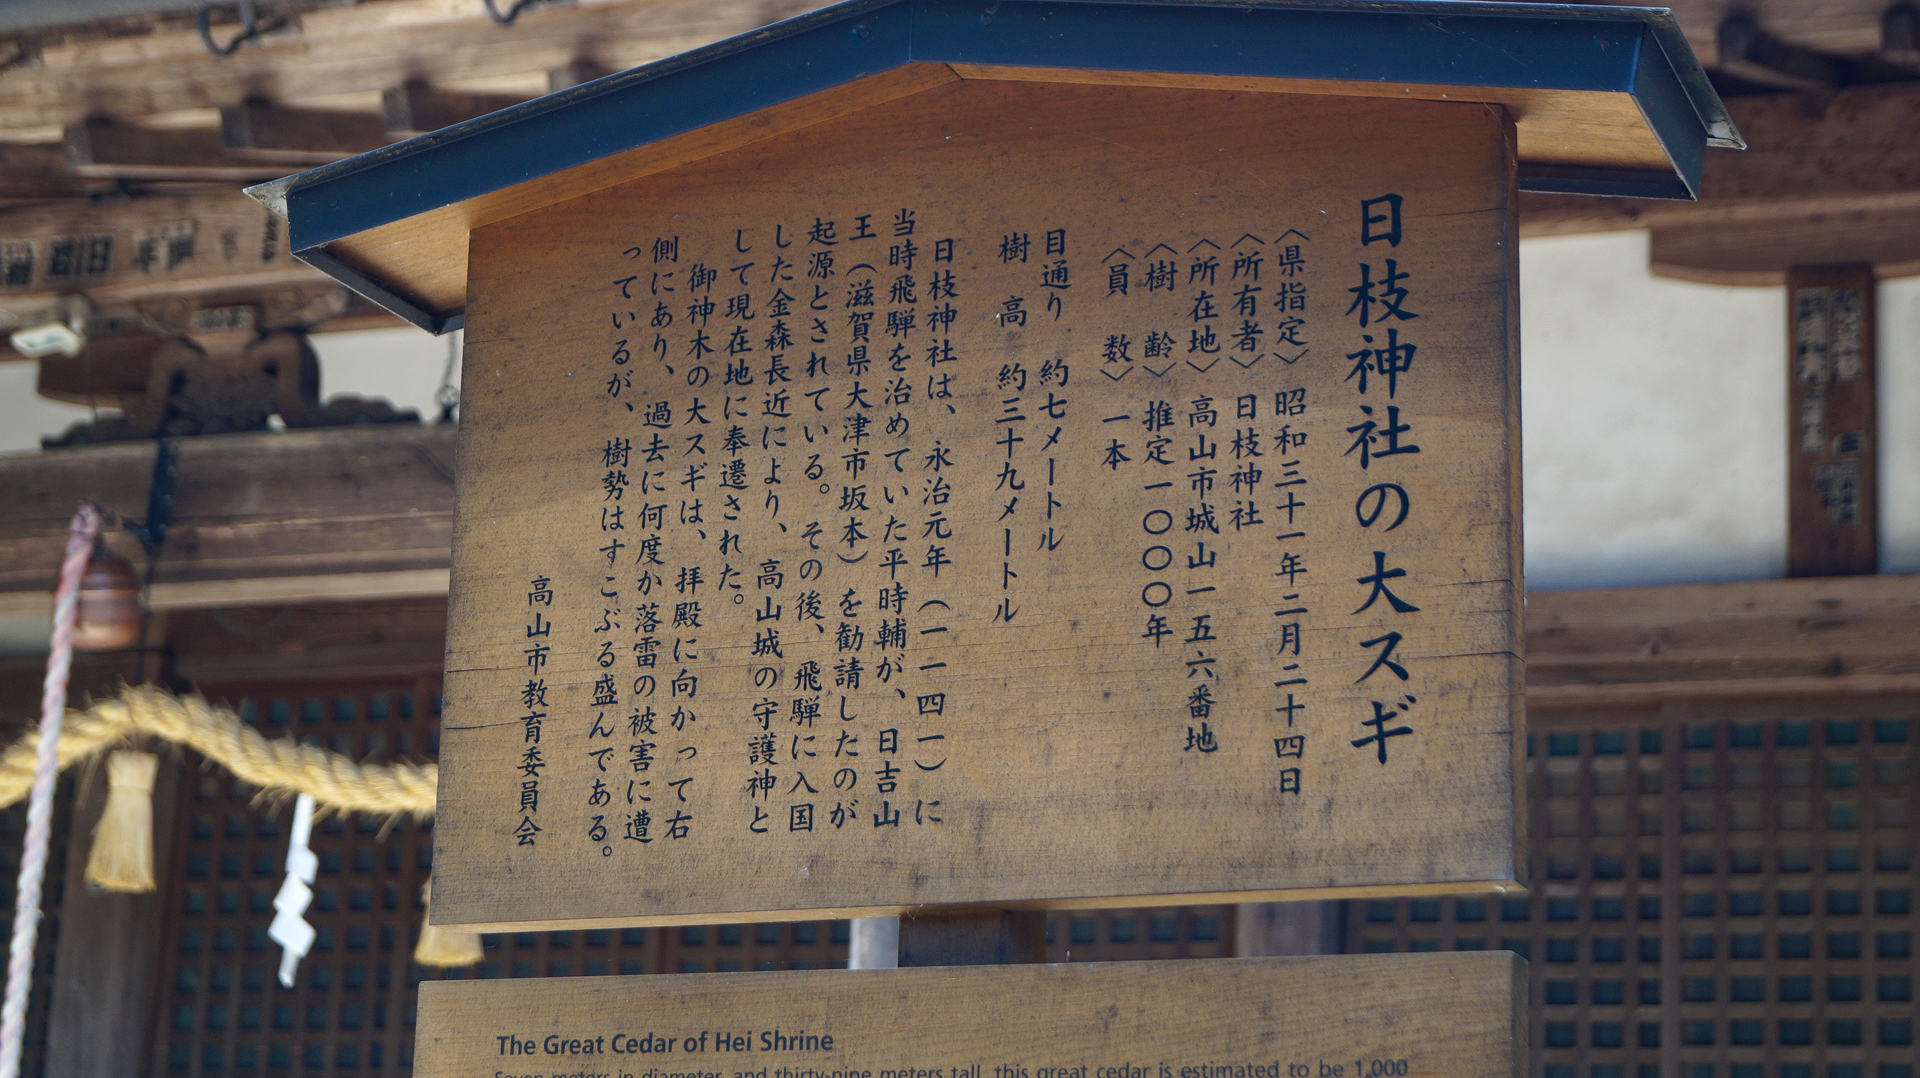 日枝神社の大スギ
〈県指定〉 昭和三十一年二月二十四日
〈所有者〉 日枝神社
〈所在地〉 高山市城山一五六番地
〈樹 齢〉 推定一〇〇〇年
〈員 数〉 一本
目通り 約七メートル
樹 高 約三十九メートル
日枝神社は、永治元年（一一四一）に
当時飛騨を治めていた平時輔が、日吉山
王（滋賀県大津市坂本）を勧請したのが
起源とされている。その後、飛騨に入国
した金森長近により、高山城の守護神と
して現在地に奉遷された。
御神木の大スギは、拝殿に向かって右
側にあり、過去に何度か落雷の被害に遭
っているが、樹勢はすこぶる盛んである。
高山市教育委員会
The Great Cedar of Hei Shrine
Seven meters in diameter, and thirty-nine meters tall, this great cedar is estimated to be 1,000